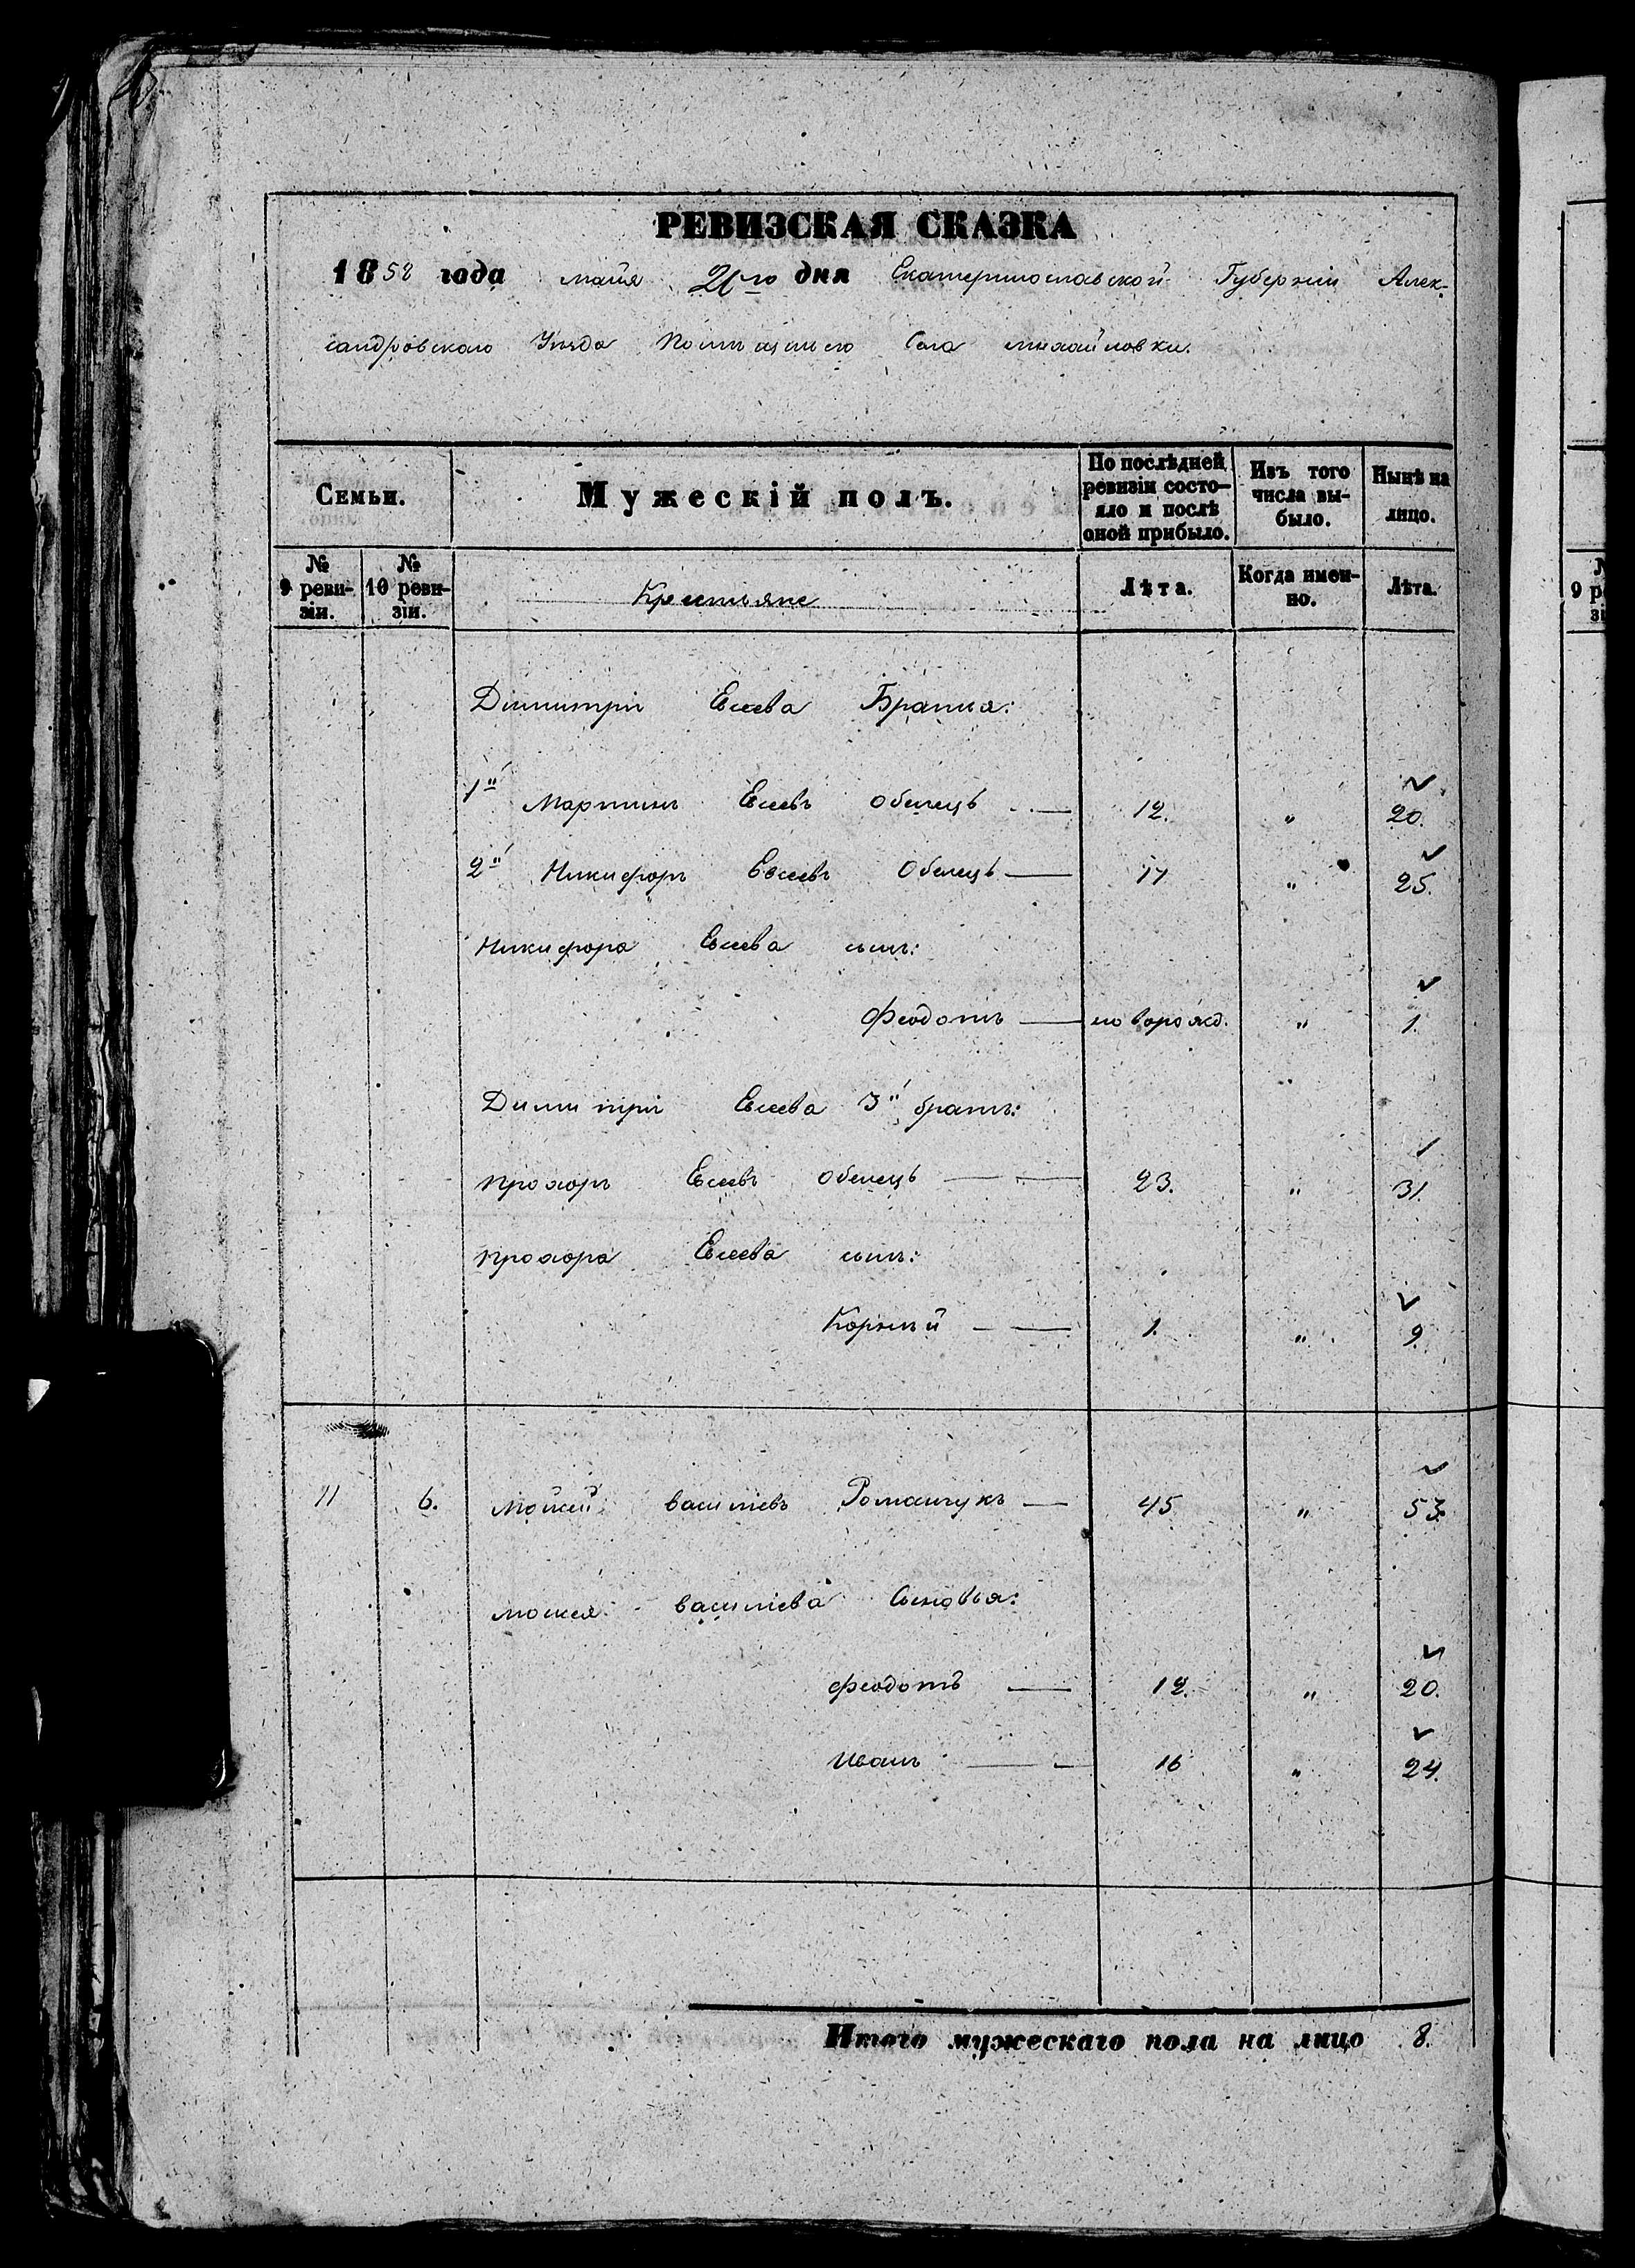 РЕВИЗСКАЯ СКАЗКА
1858 года майя 21го дня Екатеринославской Губерніи Алек-
сандровскаго Уѣзда Помѣщичьего Села михайловки.
Семьи.
Мужескій полъ.
По послѣдней ревизіи состо-яло и послѣ оной прибыло.
Изъ того числа вы-было.
Нынѣ на лицо.
№ 9 реви-зіи.
№ 10 реви-зіи.
Крестьяне
Лѣта.
Когда имен-но.
Лѣта.
Димитрія Евсеева Братья:
1й Мартинъ Евсеевъ Обенецъ — 12. " 20.
2й Никифоръ Евсеевъ Обенецъ — 17 " 25.
Никифора Евсеева сынъ:
Феодотъ — новорожд. " 1.
Димитрія Евсеева 3й братъ:
Прохоръ Евсеевъ Обенецъ — 23. " 31.
Прохора Евсеева сынъ:
Корнѣй — 1. " 9.
11 6. Мойсей василіевъ Романчукъ — 45 " 53.
мойсея василіева Сыновья:
феодотъ — 12. " 20.
Иванъ — 16 " 24.
Итого мужескаго пола на лицо 8.
№
9 р
зі